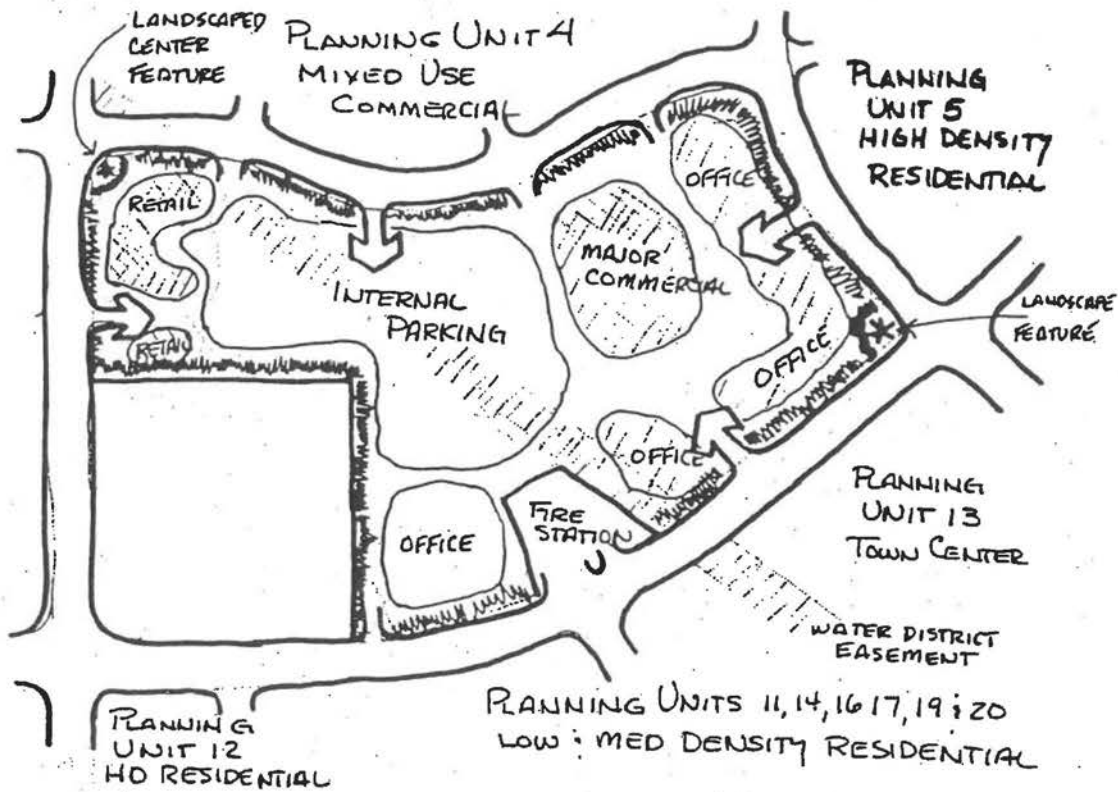 LANDSCAPED
CENTER
FEATURE
PLANNING UNIT 4
MIXED USE
COMMERCIAL
PLANNING
UNIT 5
HIGH DENSITY
RESIDENTIAL
RETAIL
OFFICE
MAJOR
COMMERCIAL
INTERNAL
PARKING
RETAIL
OFFICE
LANDSCAPE
FEATURE
OFFICE
OFFICE
FIRE
STATION
PLANNING
UNIT 13
TOWN CENTER
WATER DISTRICT
EASEMENT
PLANNING UNITS 11, 14, 16 17, 19 & 20
LOW & MED DENSITY RESIDENTIAL
PLANNING
UNIT 12
HD RESIDENTIAL